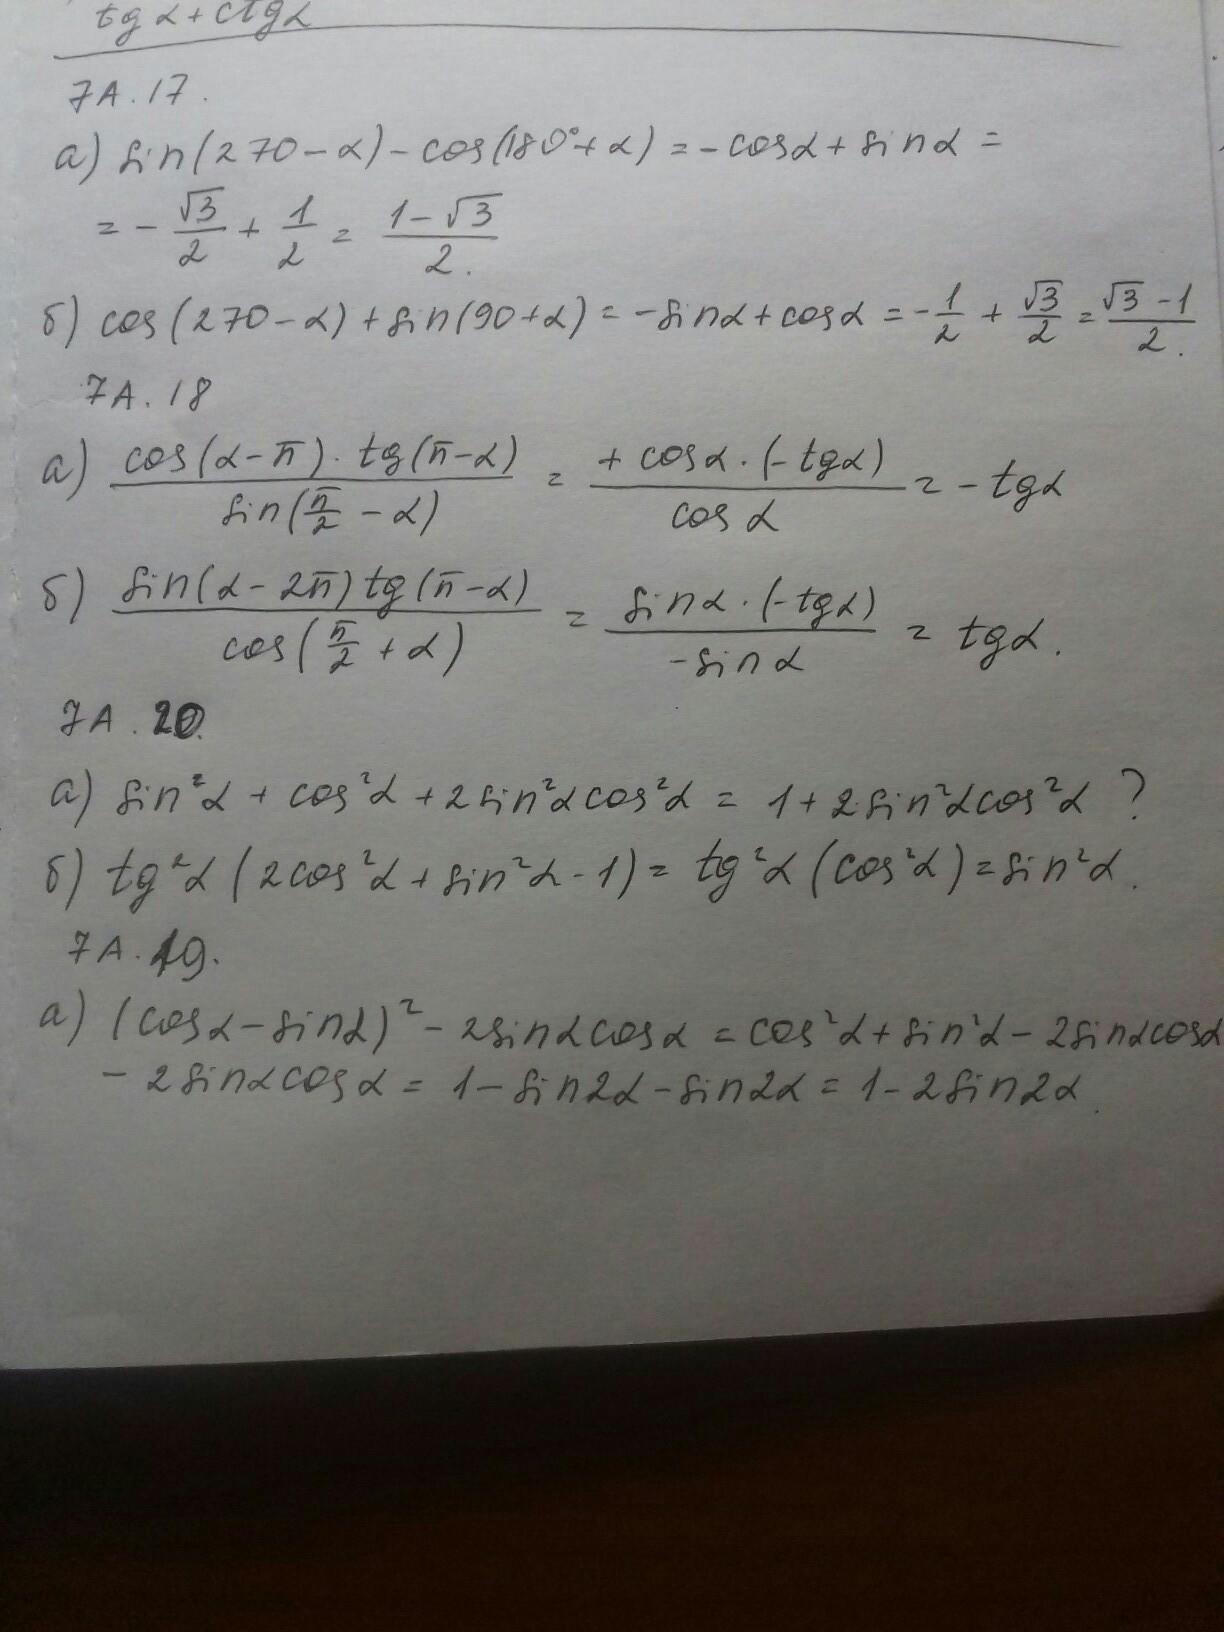 tg α + ctg α
7A.17.
а) sin(270-α) - cos(180°+α) = -cosα + sinα =
= - √3/2 + 1/2 = (1-√3)/2.
б) cos(270-α) + sin(90+α) = -sinα + cosα = -1/2 + √3/2 = (√3-1)/2.
7A.18
а) (cos(α-π) · tg(π-α))/(sin(π/2 - α)) = (+cosα · (-tgα))/(cos α) = -tgα
б) (sin(α-2π) tg(π-α))/(cos(π/2 + α)) = (sinα · (-tgα))/(-sinα) = tgα.
7A.20.
а) sin²α + cos²α + 2sin²αcos²α = 1 + 2sin²αcos²α ?
б) tg²α (2cos²α + sin²α - 1) = tg²α (cos²α) = sin²α.
7A.19.
а) (cosα - sinα)² - 2sinαcosα = cos²α + sin²α - 2sinαcosα
- 2sinαcosα = 1 - sin2α - sin2α = 1 - 2sin2α.